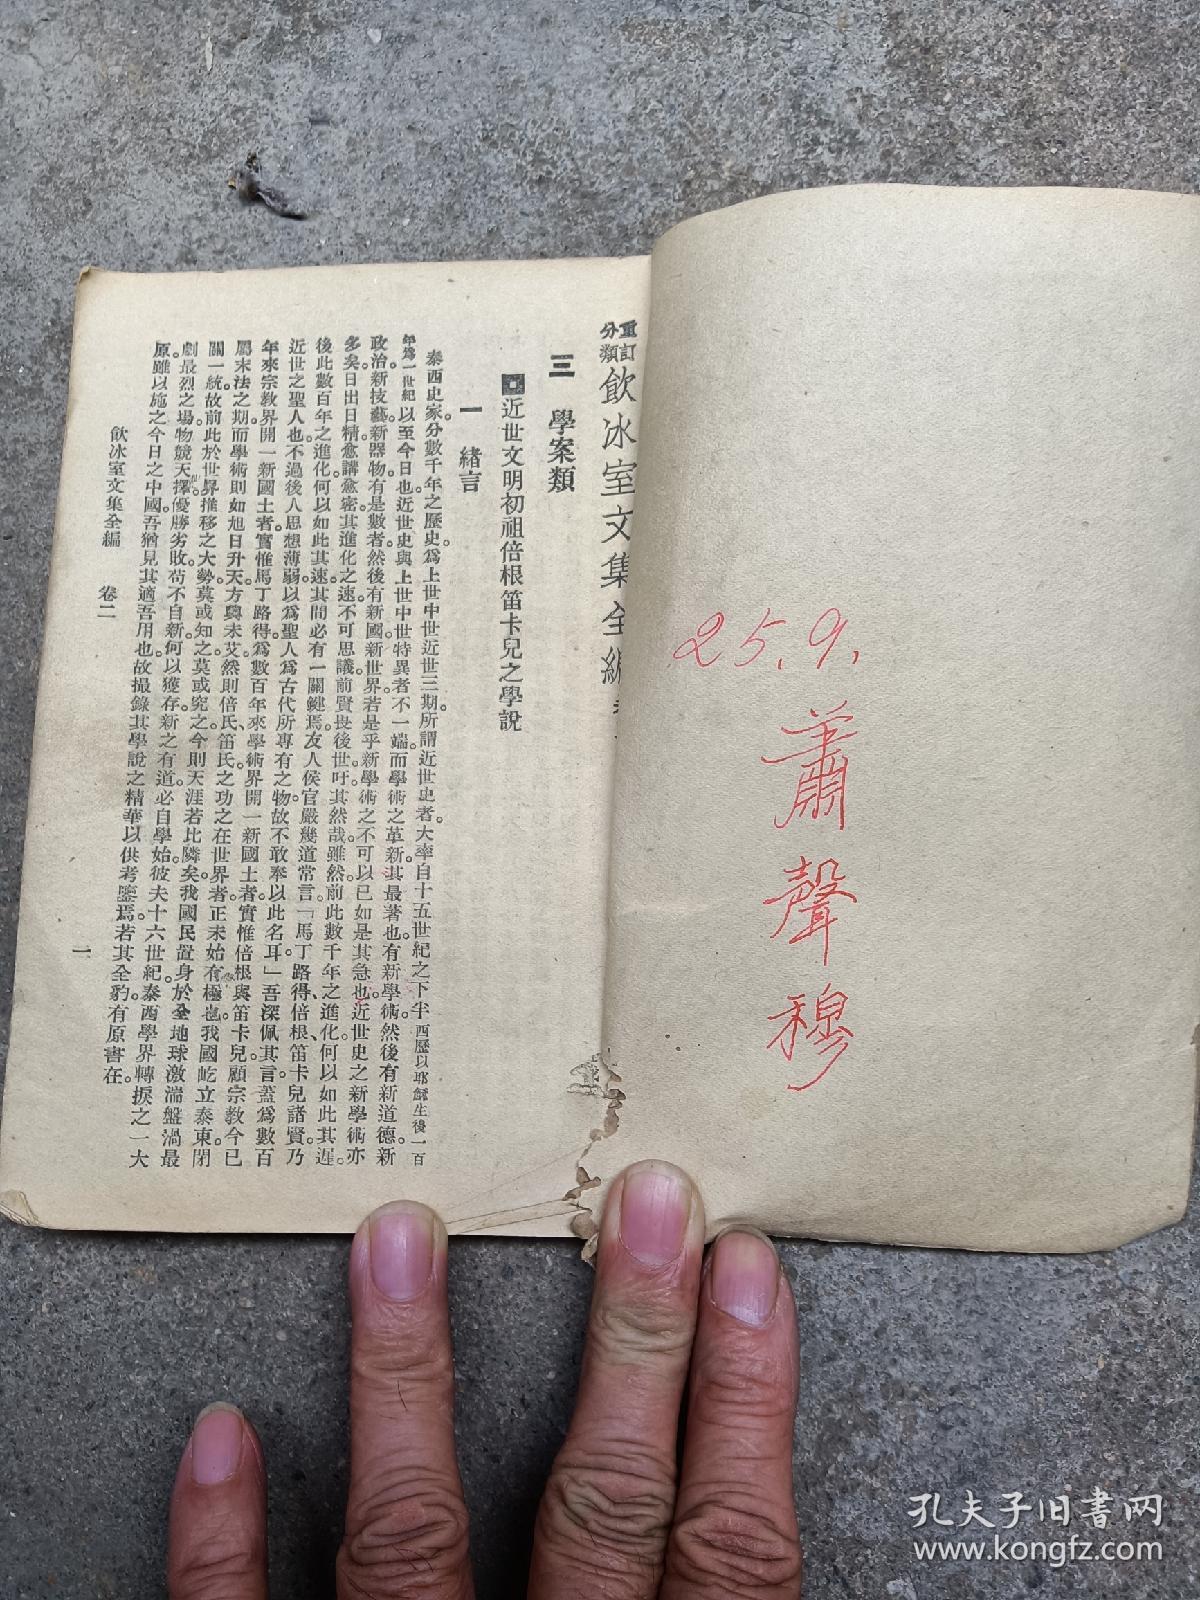 25.9.
蕭聲穆
重訂
分類
飲冰室文集全編
三　學案類
近世文明初祖倍根笛卡兒之學說
一　緒言
泰西史家。分數千年之歷史爲上世中世近世三期。所謂近世史者。大率自十五世紀之下半西歷以耶穌生後一百
年爲一世紀以至今日也。近世史與上世中世特異者不一端。而學術之革新。其最著也。有新學術。然後有新道德。新
政治。新技藝。新器物。有是數者。然後有新國。新世界。若是乎新學術之不可以已如是其急也。近世史之新學術。亦
多矣。日出日精。愈講愈密。其進化之速。不可思議。前賢畏後世。吁。其然哉。雖然。前此數千年之進化。何以如此其遲。
後此數百年之進化。何以如此其速。其間必有一關鍵焉。友人侯官嚴幾道常言。「馬丁路得、倍根、笛卡兒諸賢。乃
近世之聖人也。不過後人思想薄弱。以爲聖人爲古代所專有之物。故不敢奉以此名耳。」吾深佩其言。蓋爲數百
年來宗教界開一新國土者。實惟馬丁路得。爲數百年來學術界開一新國土者。實惟倍根與笛卡兒。顧宗教今已
屬末法之期。而學術則如旭日升天。方興未艾。然則倍氏、笛氏之功之在世界者。正未始有極也。我國屹立泰東。閉
關一統。故前此於世界推移之大勢。莫或知之。莫或究之。今則天涯若比隣矣。我國民置身於全地球激湍盤渦最
劇最烈之場。物競天擇。優勝劣敗。苟不自新。何以獲存。新之有道。必自學始。彼夫十六世紀。泰西學界轉捩之一大
原。雖以施之今日之中國。吾猶見其適吾用也。故撮錄其學說之精華。以供考鑒焉。若其全豹。有原書在。
飲冰室文集全編　卷二
一
孔夫子旧書网
www.kongfz.com